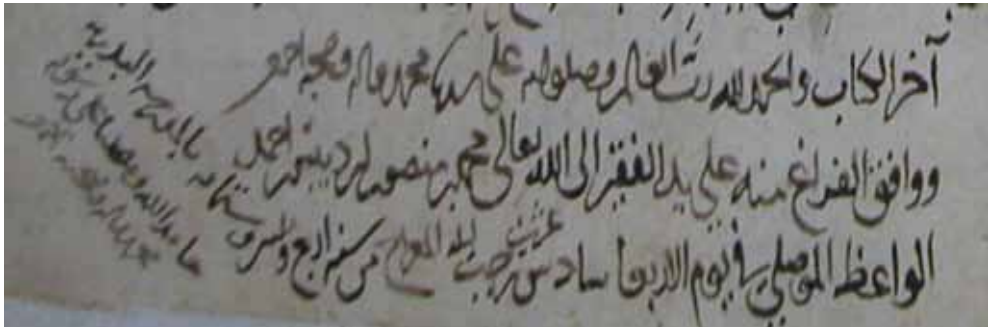 آخر الكتاب والحمد لله رب العالمين وصلواته على سيدنا محمد وآله وصحبه أجمعين
ووافق الفراغ منه على يد الفقير إلى الله تعالى محمد بن منصور بن دبيس بن أحمد
الواعظ الموصلي في يوم الاربعا سادس عشرين رجب ليلة المعراج من سنة اربع وعشر وستمايه
حامدا لله ومصليا على